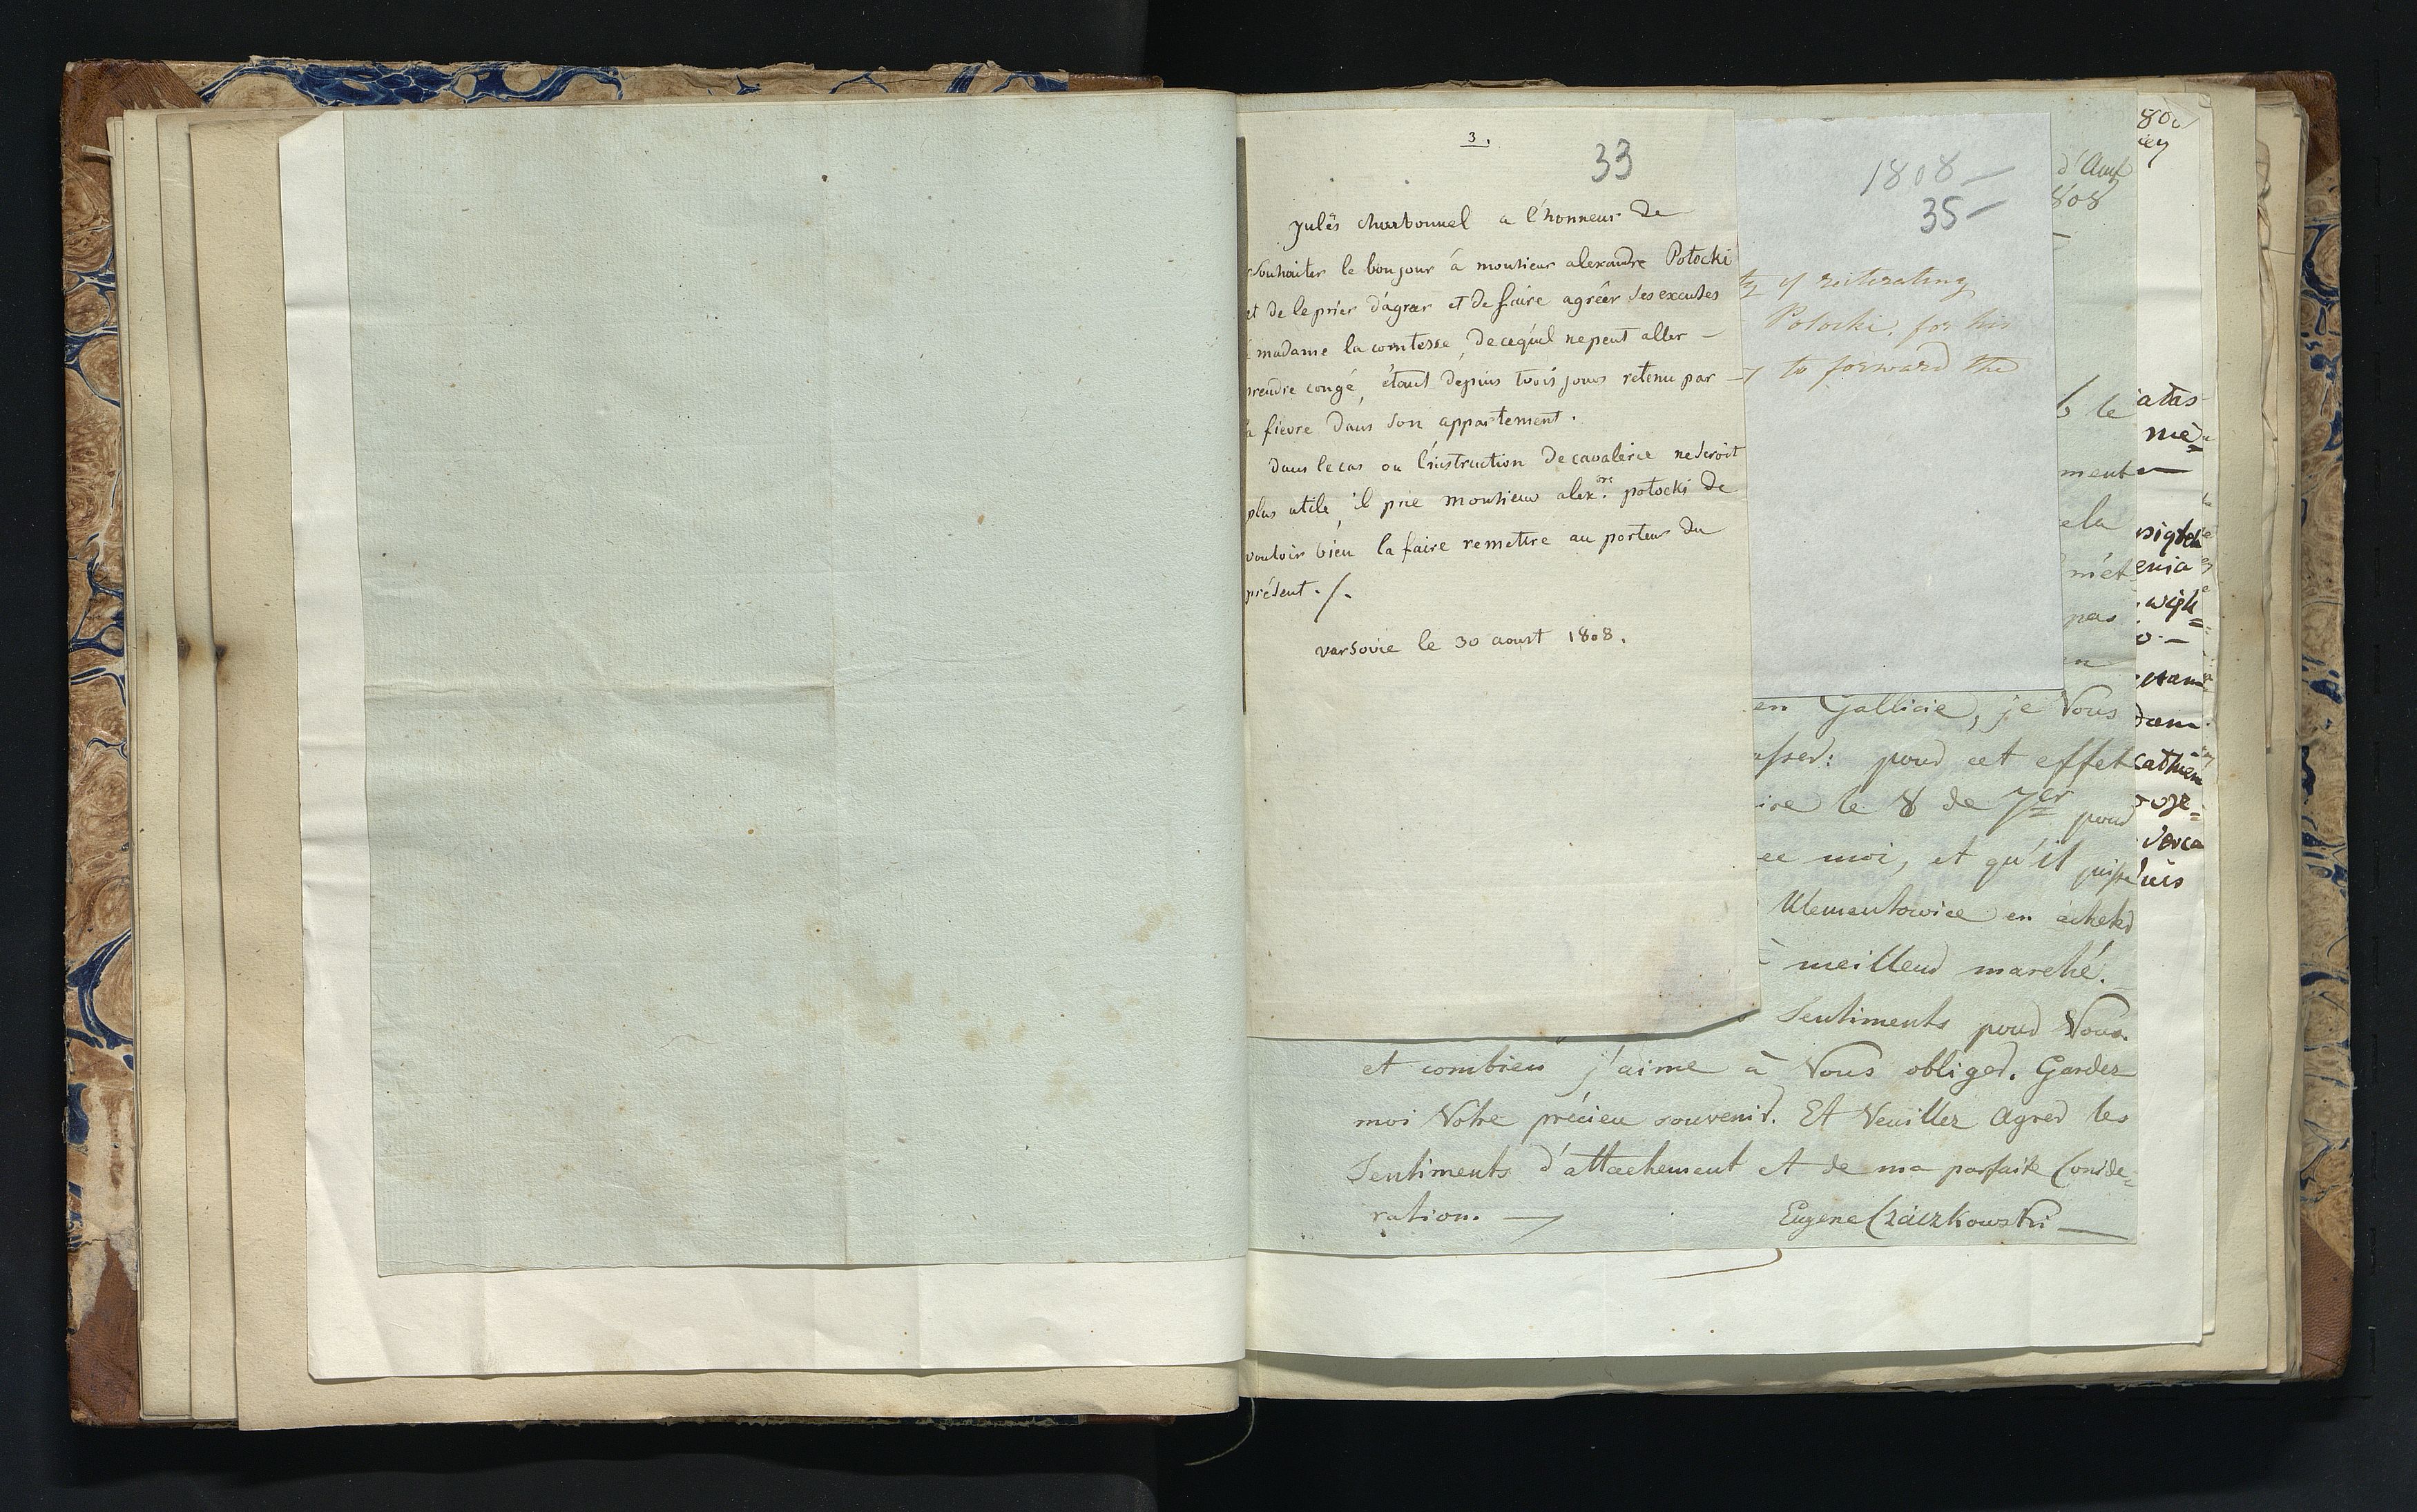 3.
33
Julës Charbonnel a l'honneur de
souhaiter le bonjour à monsieur alexandre Potocki
et de le prier d'agréer et de faire agréer ses excuses
madame la comtesse, de cequ'il nepeut aller —
prendre congé, étant depuis trois jours retenu par
a fievre dans son appartement.
dans le cas ou l'instruction de cavalerie neseroit
plus utile, il prie monsieur alex.dre potocki de
vouloir bien la faire remettre au porteur du
présent ./.
varsovie le 30 aoust 1808.
1808 —
35 —
of reiterating
Potocki, for his
to forward the
d'Aug
808
le
ment
ela
m'et
pas
en Gallicie, je Vous
asser: pour cet effet
ire le 8 de 7er pour
ec moi, et qu'il puisse
Klementowice en acheter
à meilleur marché.
Sentiments pour Vous.
et combien j'aime à Vous obliger. Gardez
moi Votre précieu souvenir. Et Veuillez Agreer les
Sentiments d'attachement et de ma parfaite Conside=
ration. —
Eugene Czaczkowski —
atas
nie
enia
dam